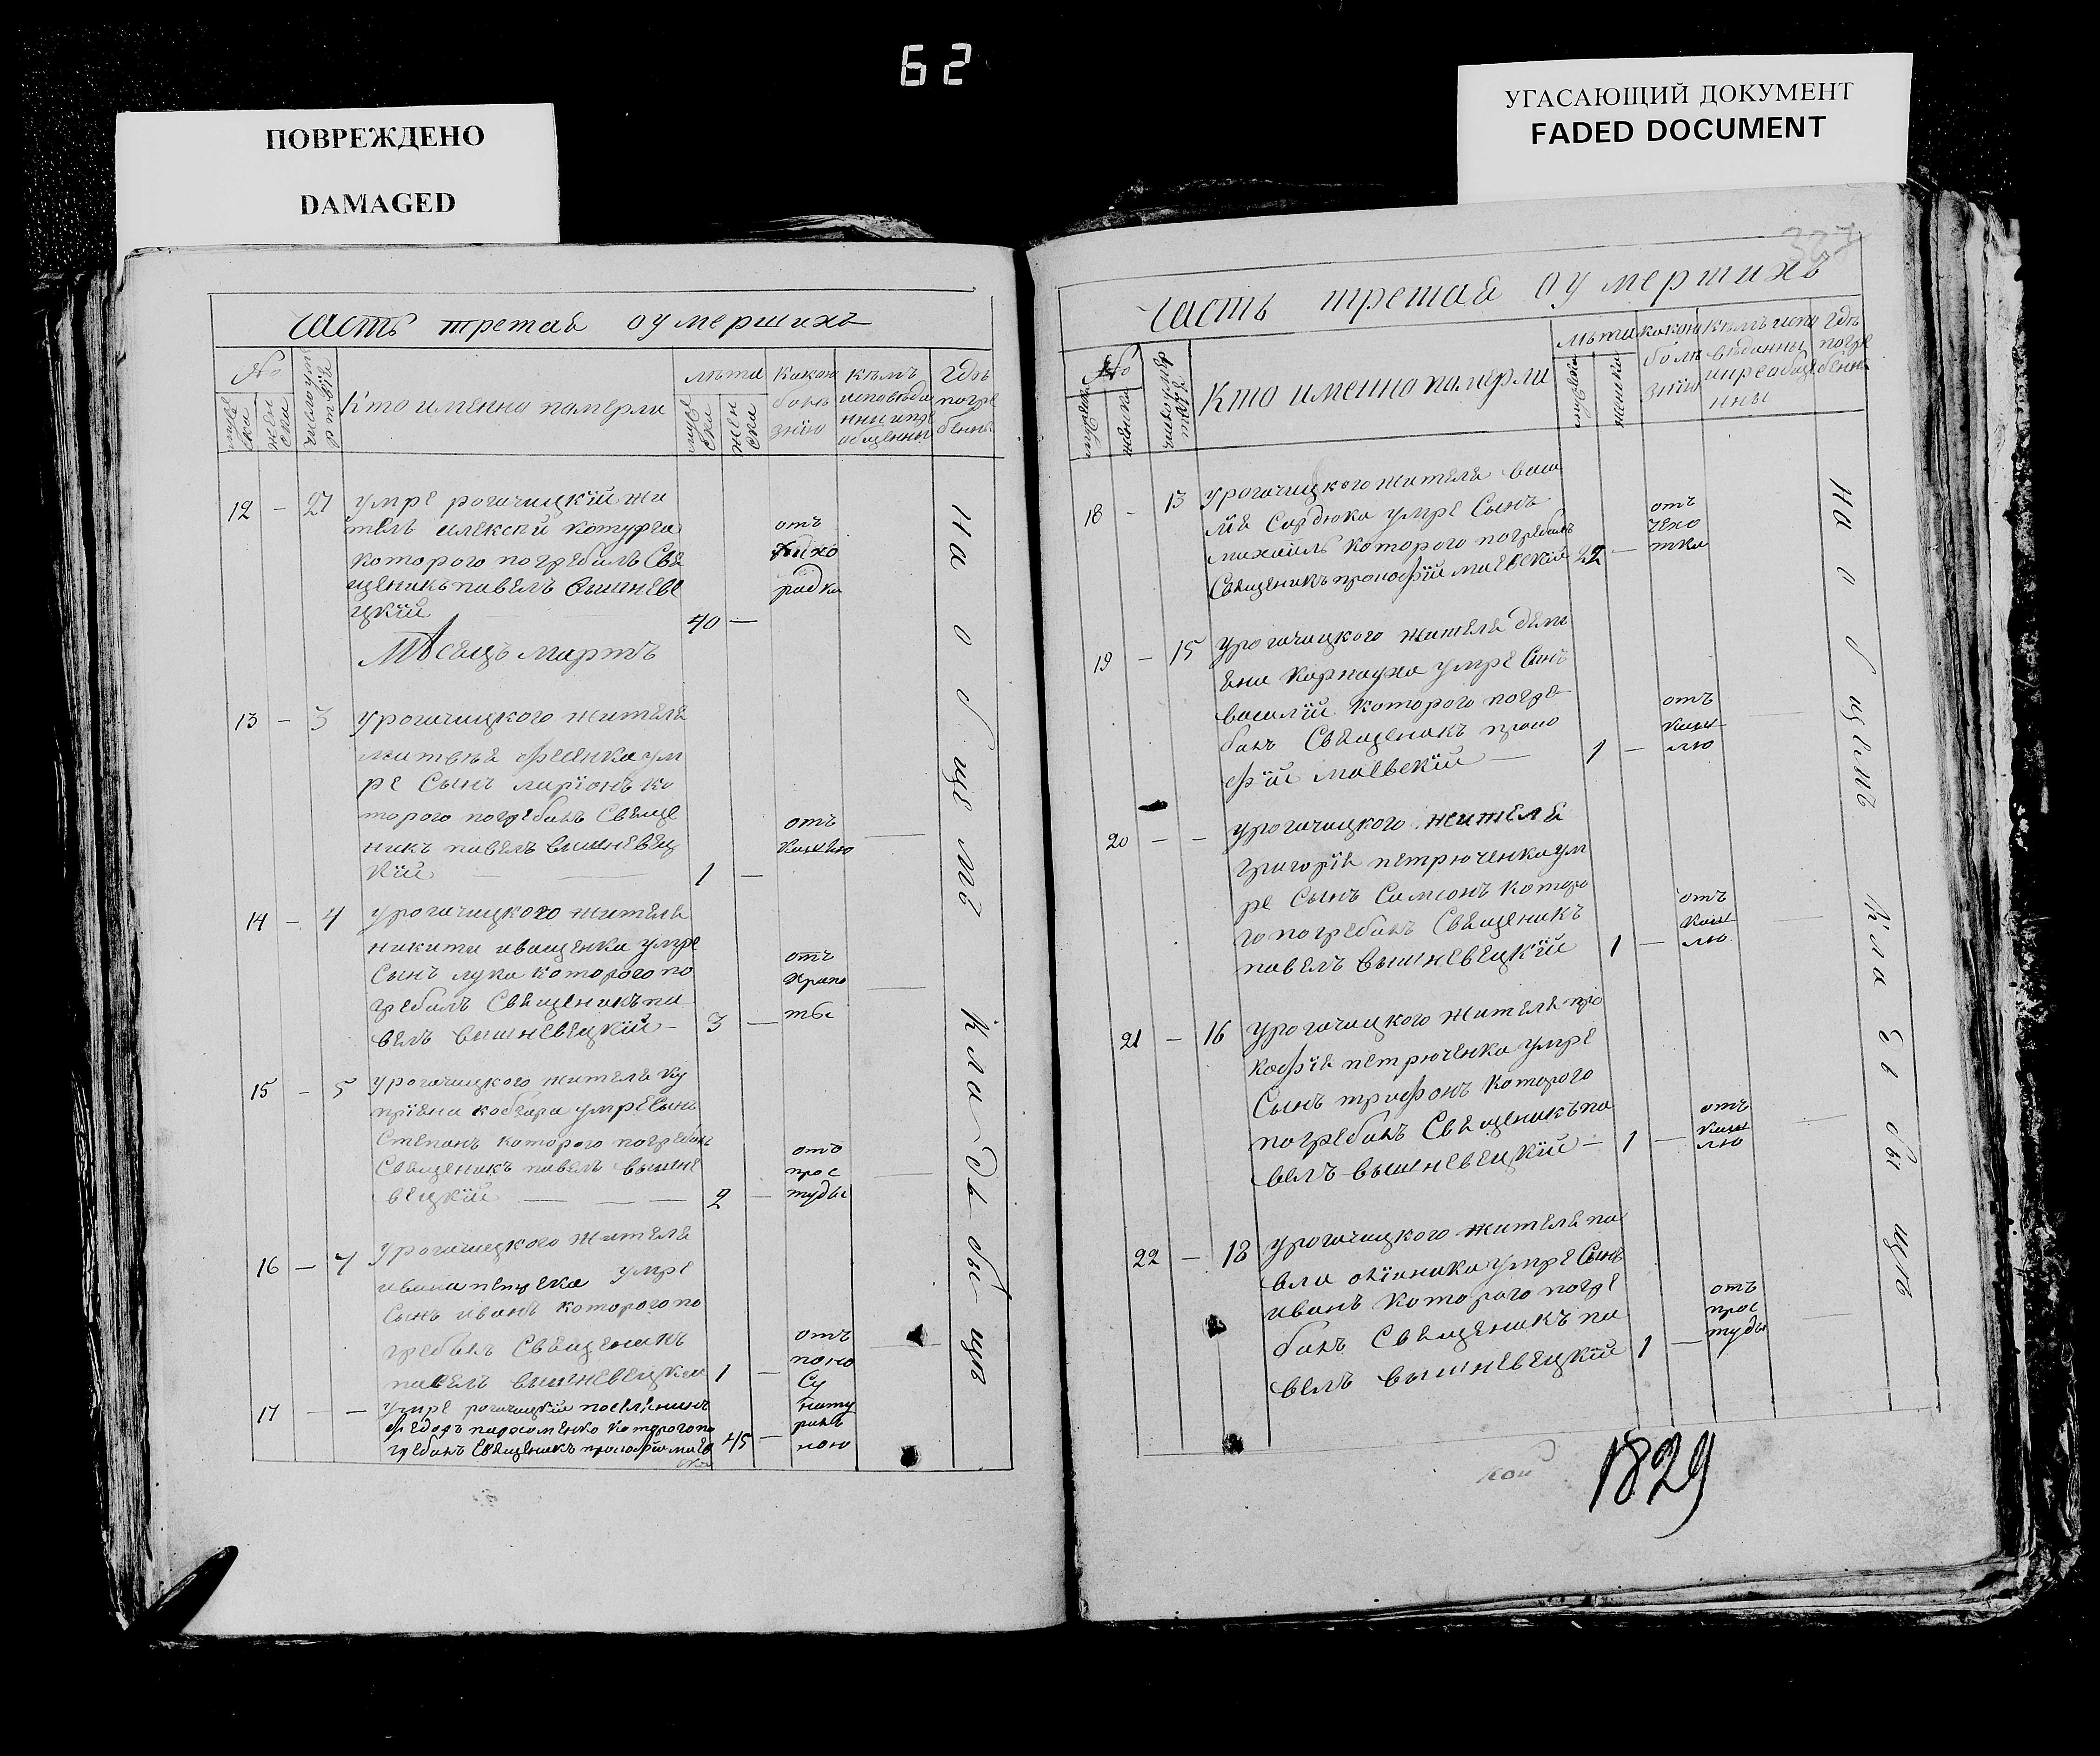 62
ПОВРЕЖДЕНО
DAMAGED
УГАСАЮЩИЙ ДОКУМЕНТ
FADED DOCUMENT
Часть третая оумершихъ
№
муже ска
жен ска
число умертвія
Кто именна памерли
лѣта
муже ска
жен ска
Какою болѣ знїю
кѣмъ исповѣда нни и прі общенны
гдѣ погре бенны
12 - 27 умре рогачицкїй жи
тель алексѣй котурга
которого погребалъ Свя
щеникъ павелъ вишневе
цкїй 40 —
отъ
лихо
радки
Мѣсецъ мартъ
13 - 3 урогачицкого жителя
матвея фесенка ум
ре Сынъ ларїонъ ко
торого погребалъ Свяще
никъ павелъ вишневец
кїй 1 —
отъ
кашлю
14 - 4 урогачицкого жителя
никити иващенка умре
Сынъ лука которого по
гребалъ Священикъ па
велъ вишневецкїй - 3 —
отъ
15 - 5 урогачицкого жителя ку
прїяна кобзара умре Сынъ
Степанъ которого погребалъ
Священикъ павелъ вышне
вецкїй — — — 2 —
отъ
прос
туды
16 - 7 Урогачицкого жителя
ивана умре
Сынъ иванъ которого по
гребалъ Священикъ
павелъ вышневецкїй 1 —
отъ
поно
Су
17 - — умре рогачицкїй поселянинъ
федоръ которого по
гребалъ Священикъ прокофїй маев
скїй 45 —
нату
раль
ною
на общемъ кладьбыще
327
Часть третая оумершихъ
№
мужска
женска
число умер твія
Кто именно памерли
лѣта
мужска
женска
какою болѣ знїю
кѣмъ испо вѣданны и прїобще нны
Гдѣ погре бенны
18 - 13 урогачицкого жителя васи
лїя Сердюка умре Сынъ
михаилъ которого погребалъ
Священикъ прокофїй маевскїй 22 —
отъ
чехо
тки
19 - 15 урогачицкого жителя деми
яна Карнауха умре Сынъ
василїй которого погре
балъ Священикъ проко
фїй маевьскїй — 1 —
отъ
каш
лю
20 - - урогачицкого жителя
григорїя петрюченка ум
ре Сынъ Самсонъ которо
го погребалъ Священикъ
павелъ вышневецкїй 1 —
отъ
каш
лю
21 - 16 урогачицкого жителя про
кофїя петрюченка умре
Сынъ трифонъ которого
погребалъ Священикъ па
велъ вышневецкїй — 1 —
отъ
каш
лю
22 - 18 урогачицкого жителя па
вла умре Сынъ
иванъ которого погре
балъ Священикъ па
велъ вышневецкїй 1 —
отъ
прос
туды
на общемъ кладьбыще
1829